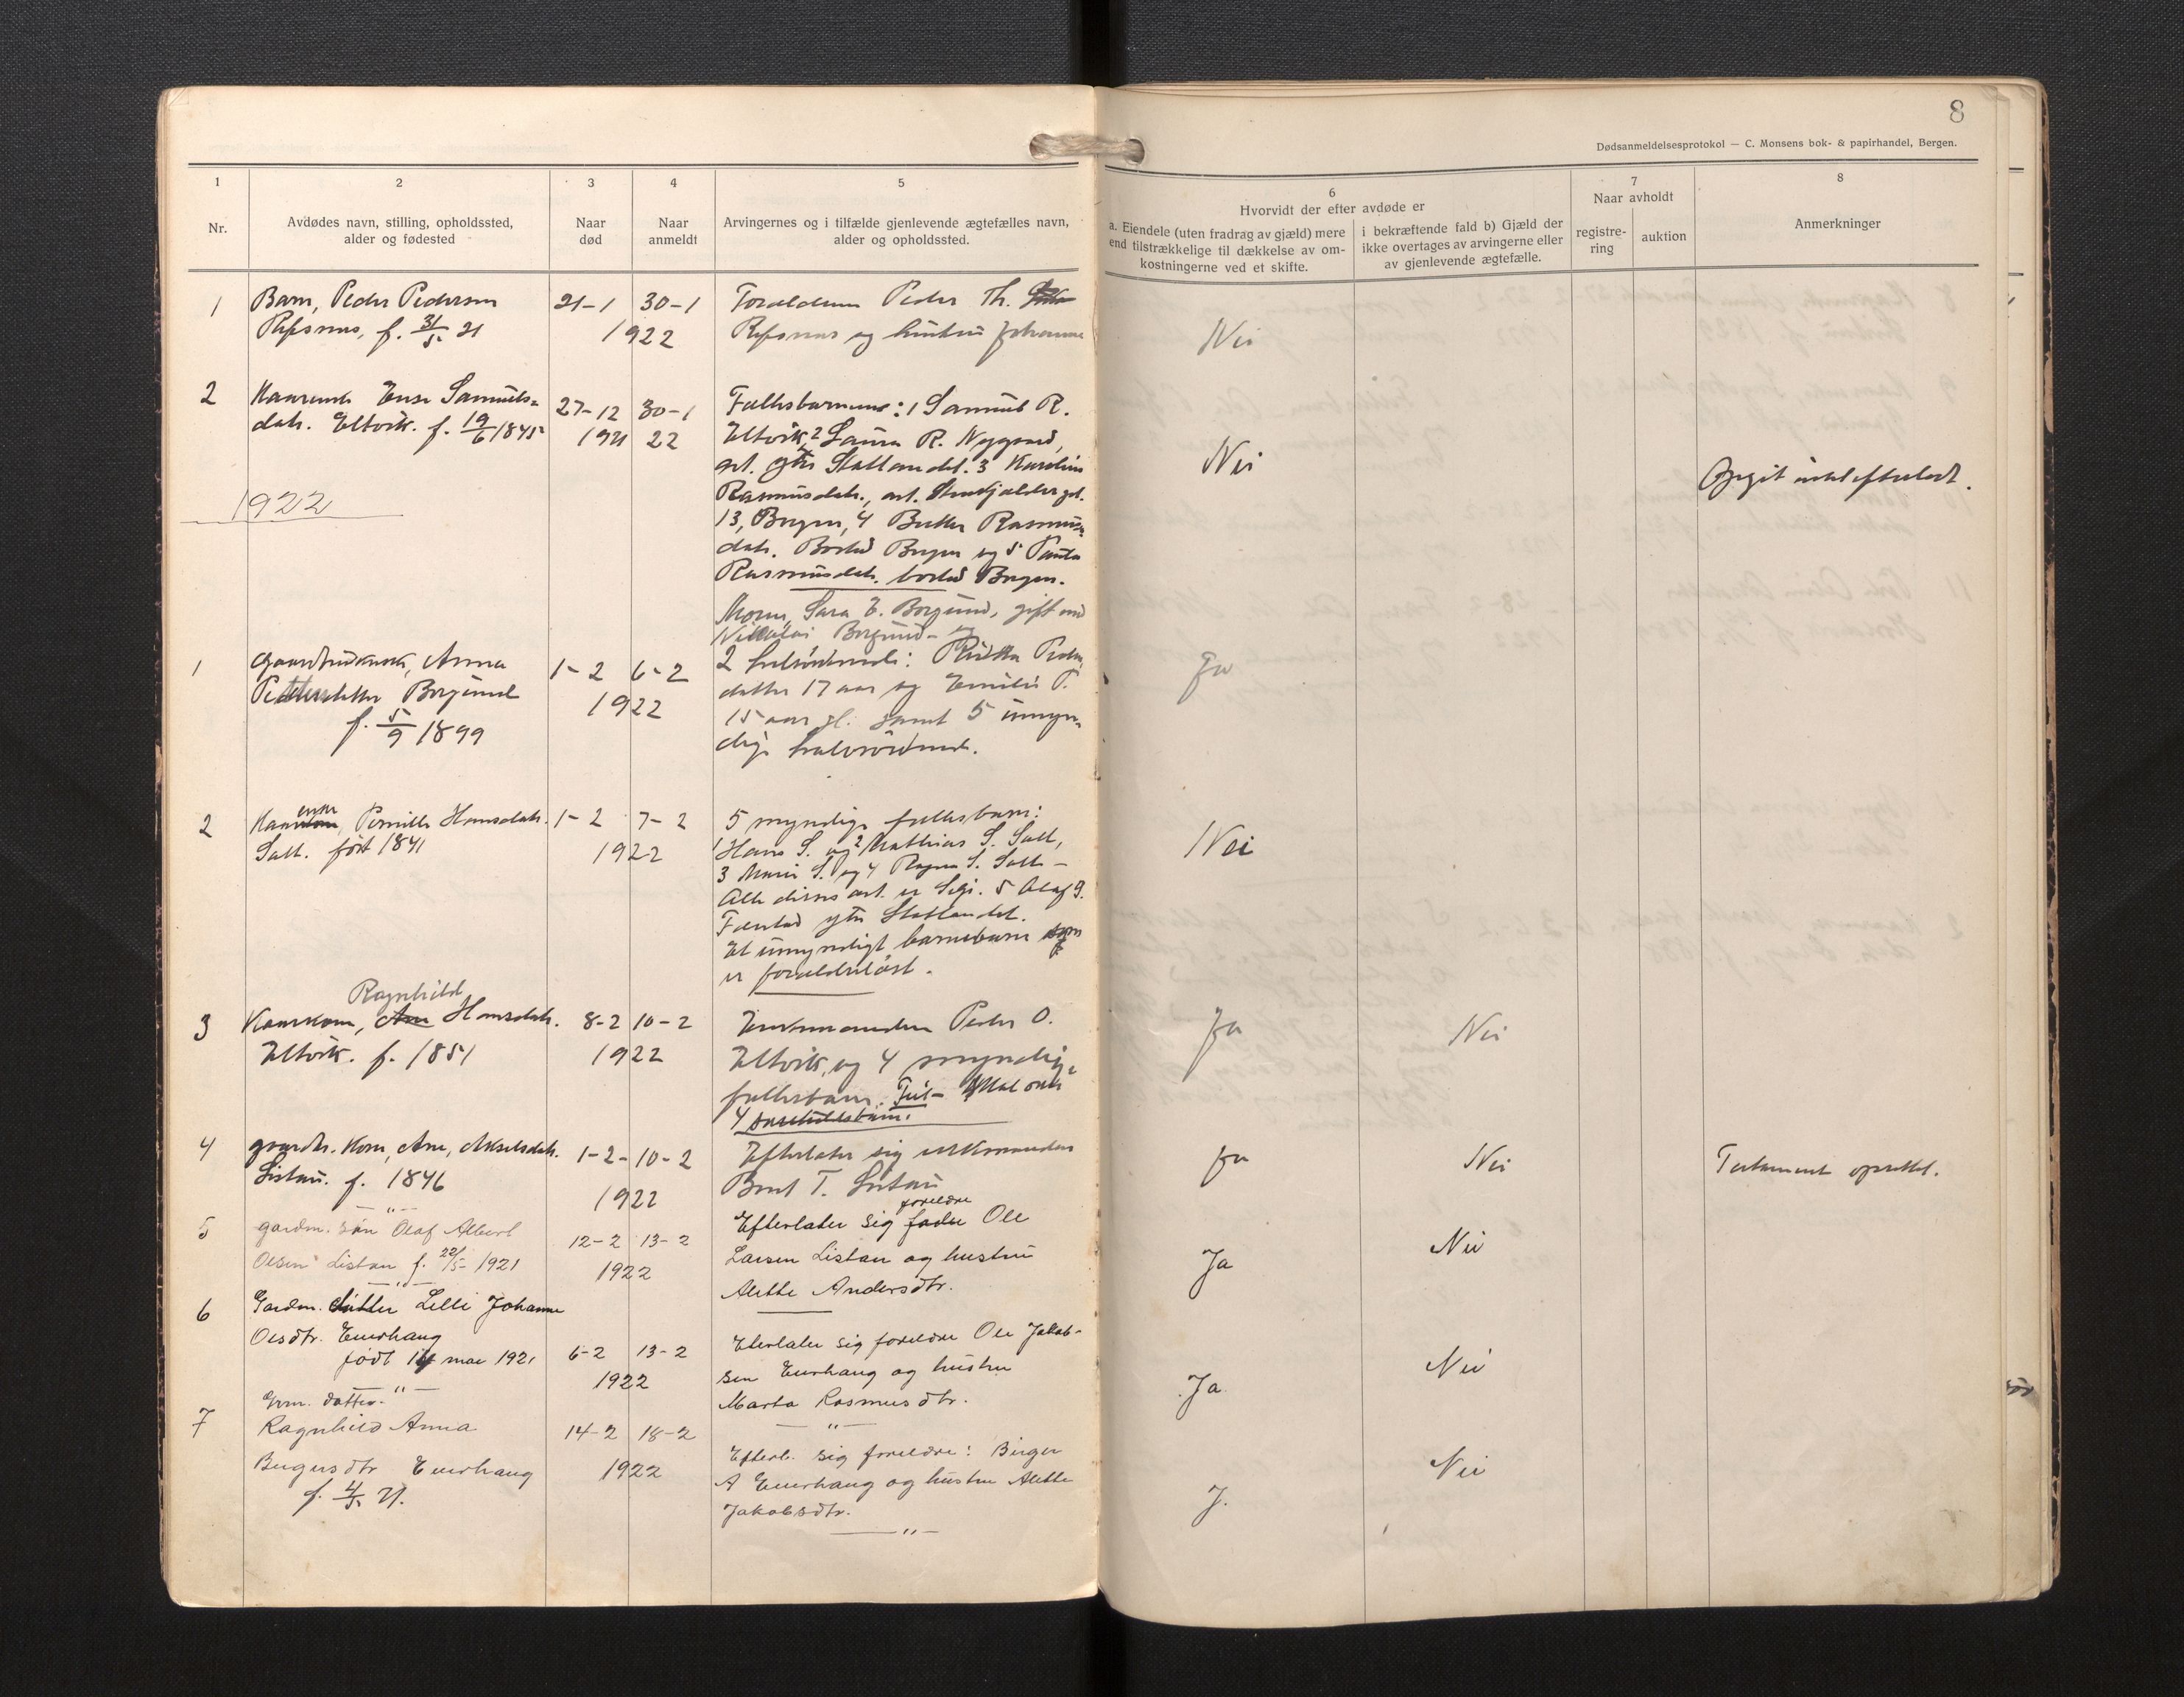 8
Dødsanmeldelsesprotokol — C. Monsens bok- & papirhandel, Bergen.
1
Nr.
2
Avdødes navn, stilling, opholdssted,
alder og fødested
3
Naar
død
4
Naar
anmeldt
5
Arvingernes og i tilfælde gjenlevende ægtefælles navn,
alder og opholdssted.
6
Hvorvidt der efter avdøde er
a. Eiendele (uten fradrag av gjæld) mere
end tilstrækkelige til dækkelse av om-
kostningerne ved et skifte.
i bekræftende fald b) Gjæld der
ikke overtages av arvingerne eller
av gjenlevende ægtefælle.
7
Naar avholdt
registre-
ring
auktion
8
Anmerkninger
1
Barn, Peder Pedersen
Refsnes, f. 31/5 21
21-1 30-1
1922
Forældrene Peder Th.
Refsnes og hustru Johanne
Nei
2
Samuels=
datr. Eltvik. f. 19/6 1845
27-12 30-1
1921 22
Fællesbarnene: 1 Samuel R.
Eltvik, 2 Laura R. Nygaard,
adr. ytre Statlandet. 3 Karoline
Rasmusdatr., adr.
13, Bergen, 4 Rasmus=
datr. Bosted Bergen og 5
Rasmusdatr. bosted Bergen.
Nei
Opgit intet efterladt.
1922
1
Anna
Pedersdatter Borgund
f. 5/9 1899
1-2 6-2
1922
Moren, Sara E. Borgund, gift med
Nikolai Borgund - og
2 helsøskende: Peders
datter 17 aar og Emilie P.
15 aar gl. samt 5 umyn-
dige halvsøskend.
Ja
2
Kaarenke, Pernille Hansdatr.
Salt. født 1841
1-2 7-2
1922
5 myndige fællesbarn:
1 Hans S. og 2 Mathias S. Salt,
3 Marie S. og 4 Ragna S. Salt -
Alle disses adr. er Selje. 5 Olaf S.
ytre Statlandet.
Et umyndigt barnebarn som
er forældreløst.
Nei
3
Ragnhild
Kaarkone, Ane Hansdatr.
Eltvik. f. 1851
8-2 10-2
1922
Enkemanden Peder O.
Eltvik, og 4 myndige
fællesbarn.
4
Ja
Nei
4
gaardbr. Kone, Ane, Akselsdatr.
Listau. f. 1846
1-2- 10-2
1922
Efterlater sig enkemanden
Bent T. Listau
Ja
Nei
Testament oprettet.
5
gaardm. søn Olaf Albert
Olsen Listau f. 22/5- 1921
12-2 13-2
1922
Efterlater sig fader forældre Ole
Larsen Listau og hustru
Alette Andersdtr.
Ja
Nei
6
Gardm. datter Lelli Johanne
Olsdtr. Enerhaug
født 14 mai 1921
6-2 13-2
1922
Eterlater sig forældre Ole Jakob-
sen Enerhaug og hustru
Marta Rasmusdtr.
Ja
Nei
7
Grm. datter
Ragnhild Anna
Birgersdtr Enerhaug
f. 4/5 21.
14-2 18-2
1922
Efterl. sig forældre: Birger
A Enerhaug og hustru Alette
Jakobsdtr.
J.
Nei